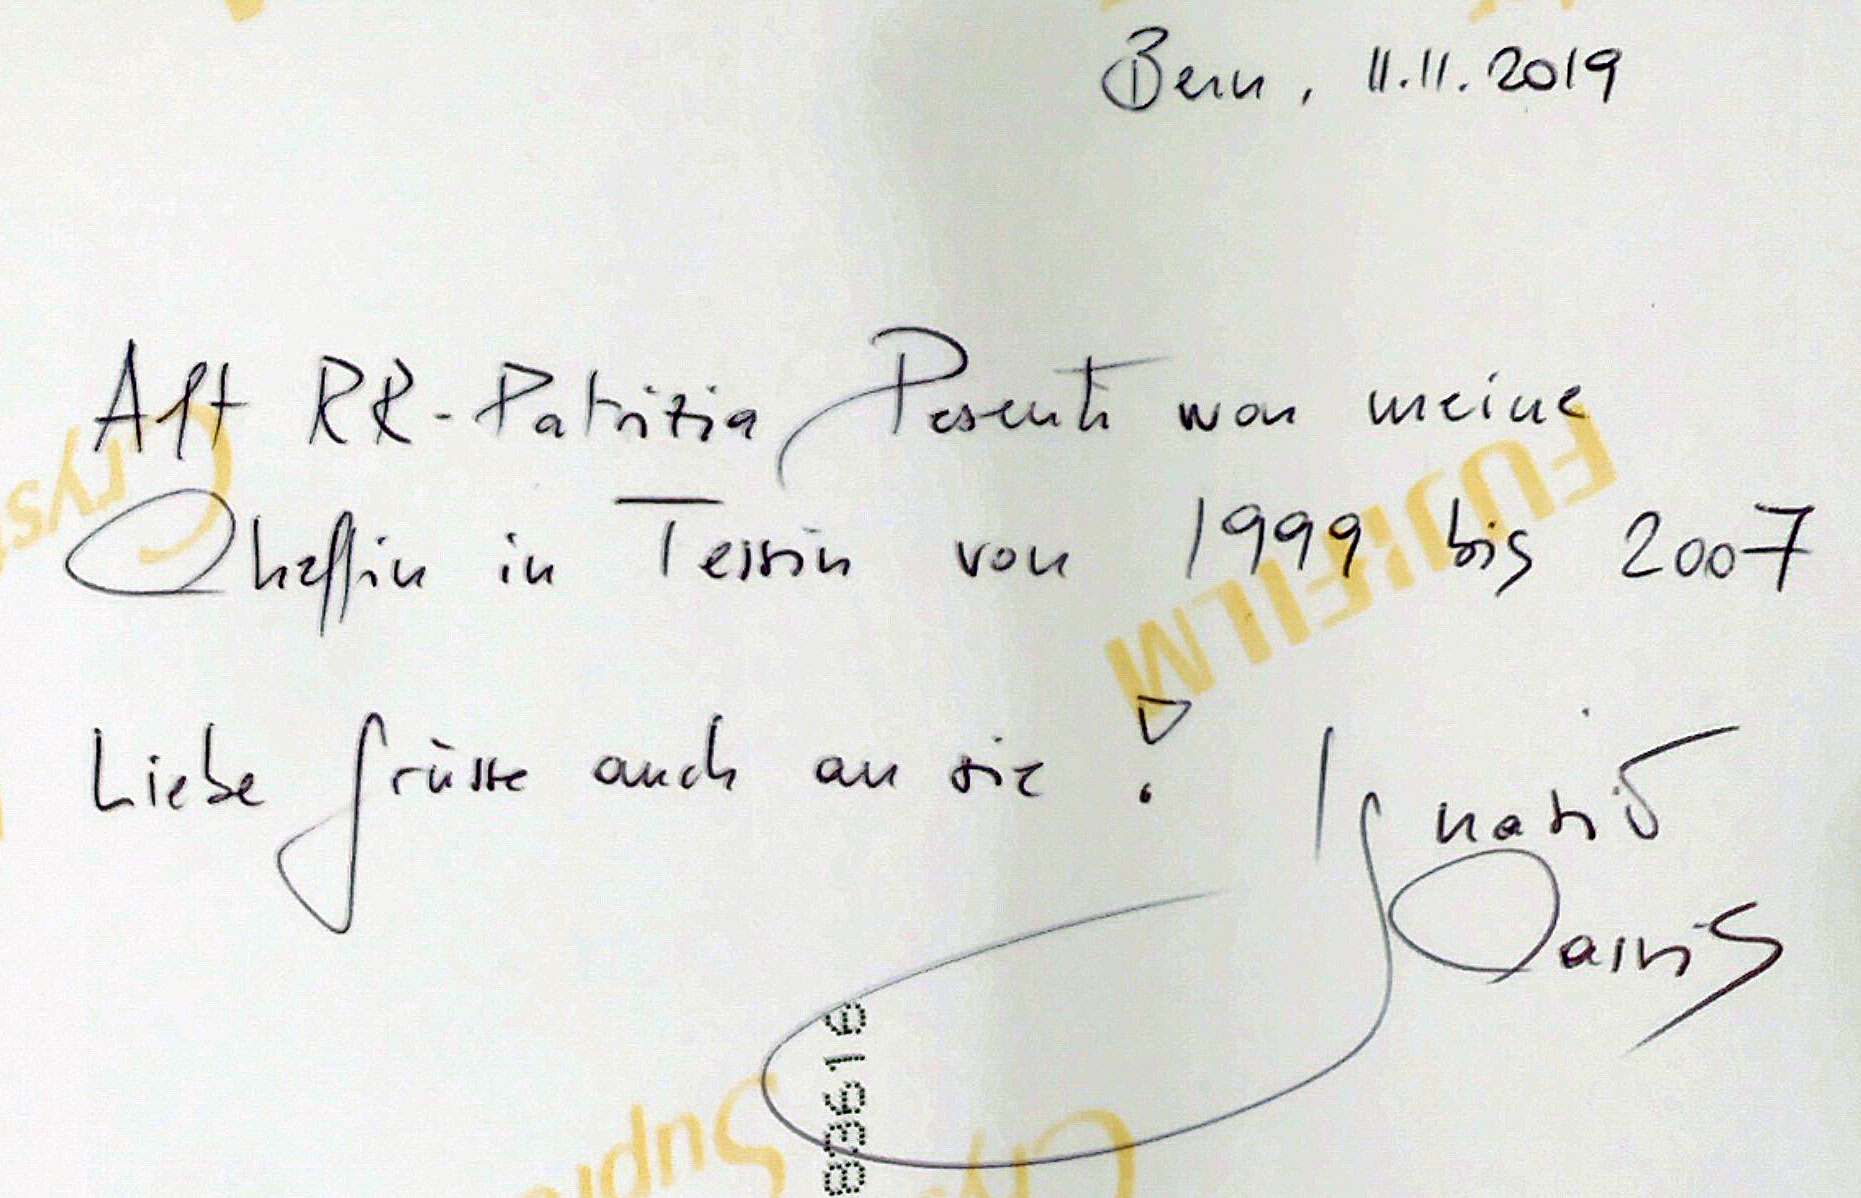 Bern, 11.11.2019
Alt RR-Patrizia Pesenti war meine
Cheffin in Tessin von 1999 bis 2007
Liebe Grüsse auch an sie!
Ignazio
Cassis
Crys
FUJIFILM
Supre
Cry
83616